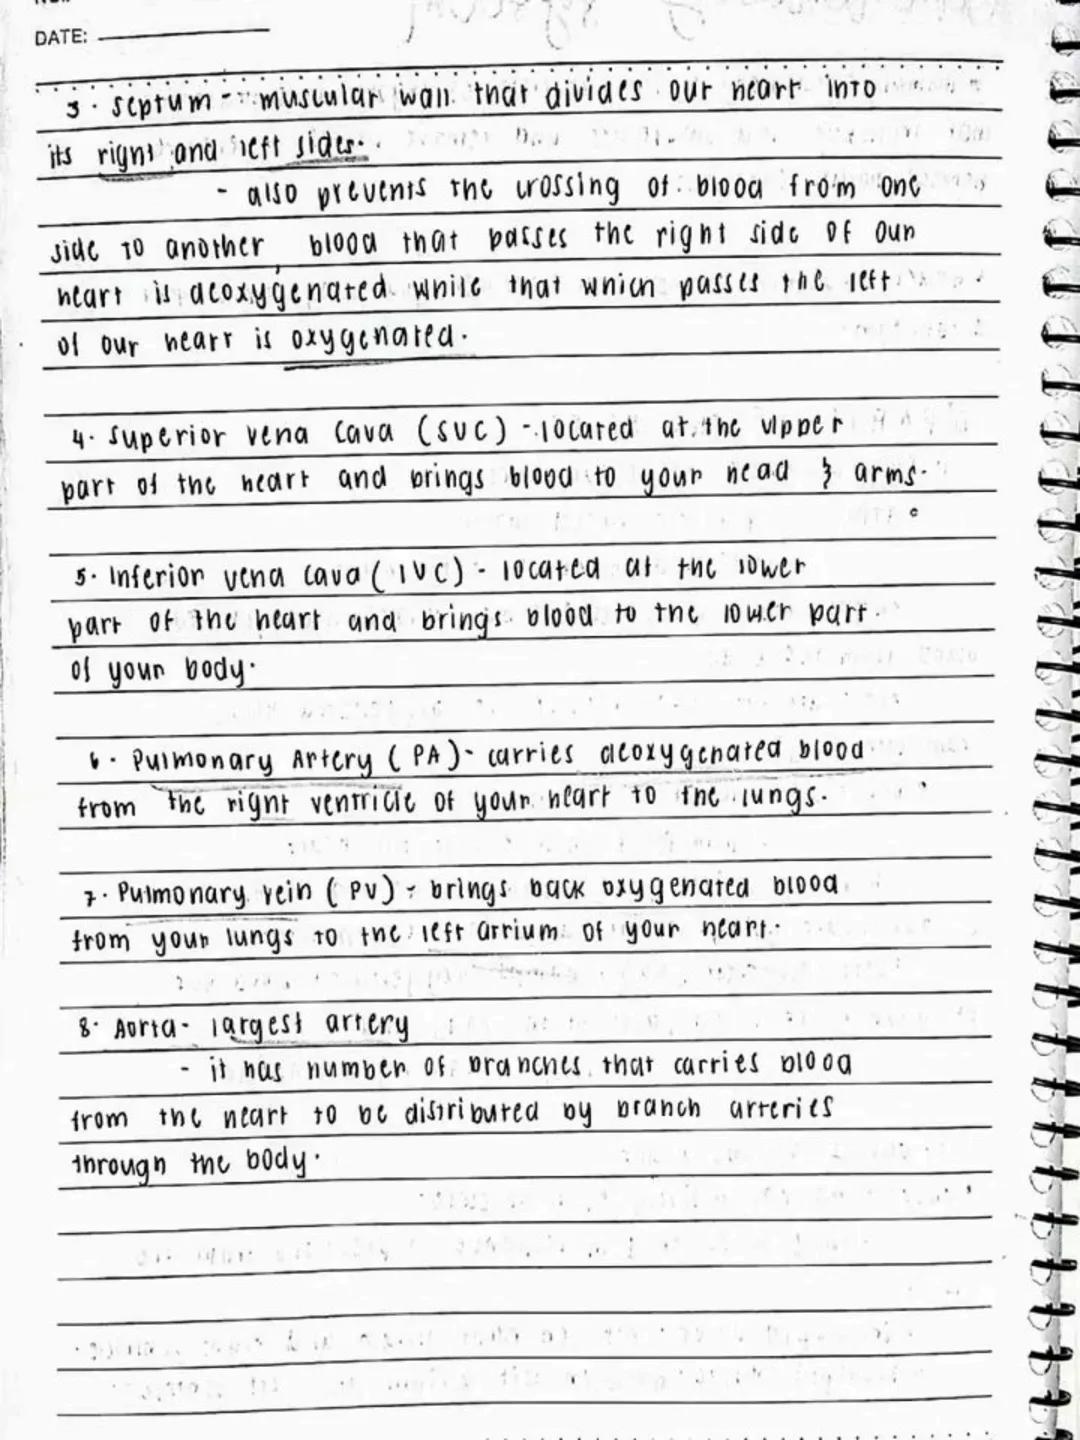 DATE:
3. Septum - muscular wall that divides our heart into
its right and left sides.
- also prevents the crossing of blood from one
side to another, blood that passes the right side of our
heart is deoxygenated while that which passes the left
of our heart is oxygenated.
4. Superior vena cava (SVC) - located at the upper
part of the heart and brings blood to your head & arms.
5. Inferior vena cava (IVC) - located at the lower
part of the heart and brings blood to the lower part
of your body.
6. Pulmonary Artery (PA) - carries deoxygenated blood
from the right ventricle of your heart to the lungs.
7. Pulmonary vein (PV) - brings back oxygenated blood
from your lungs to the left atrium of your heart.
8. Aorta - largest artery
- it has number of branches that carries blood
from the heart to be distributed by branch arteries
through the body.